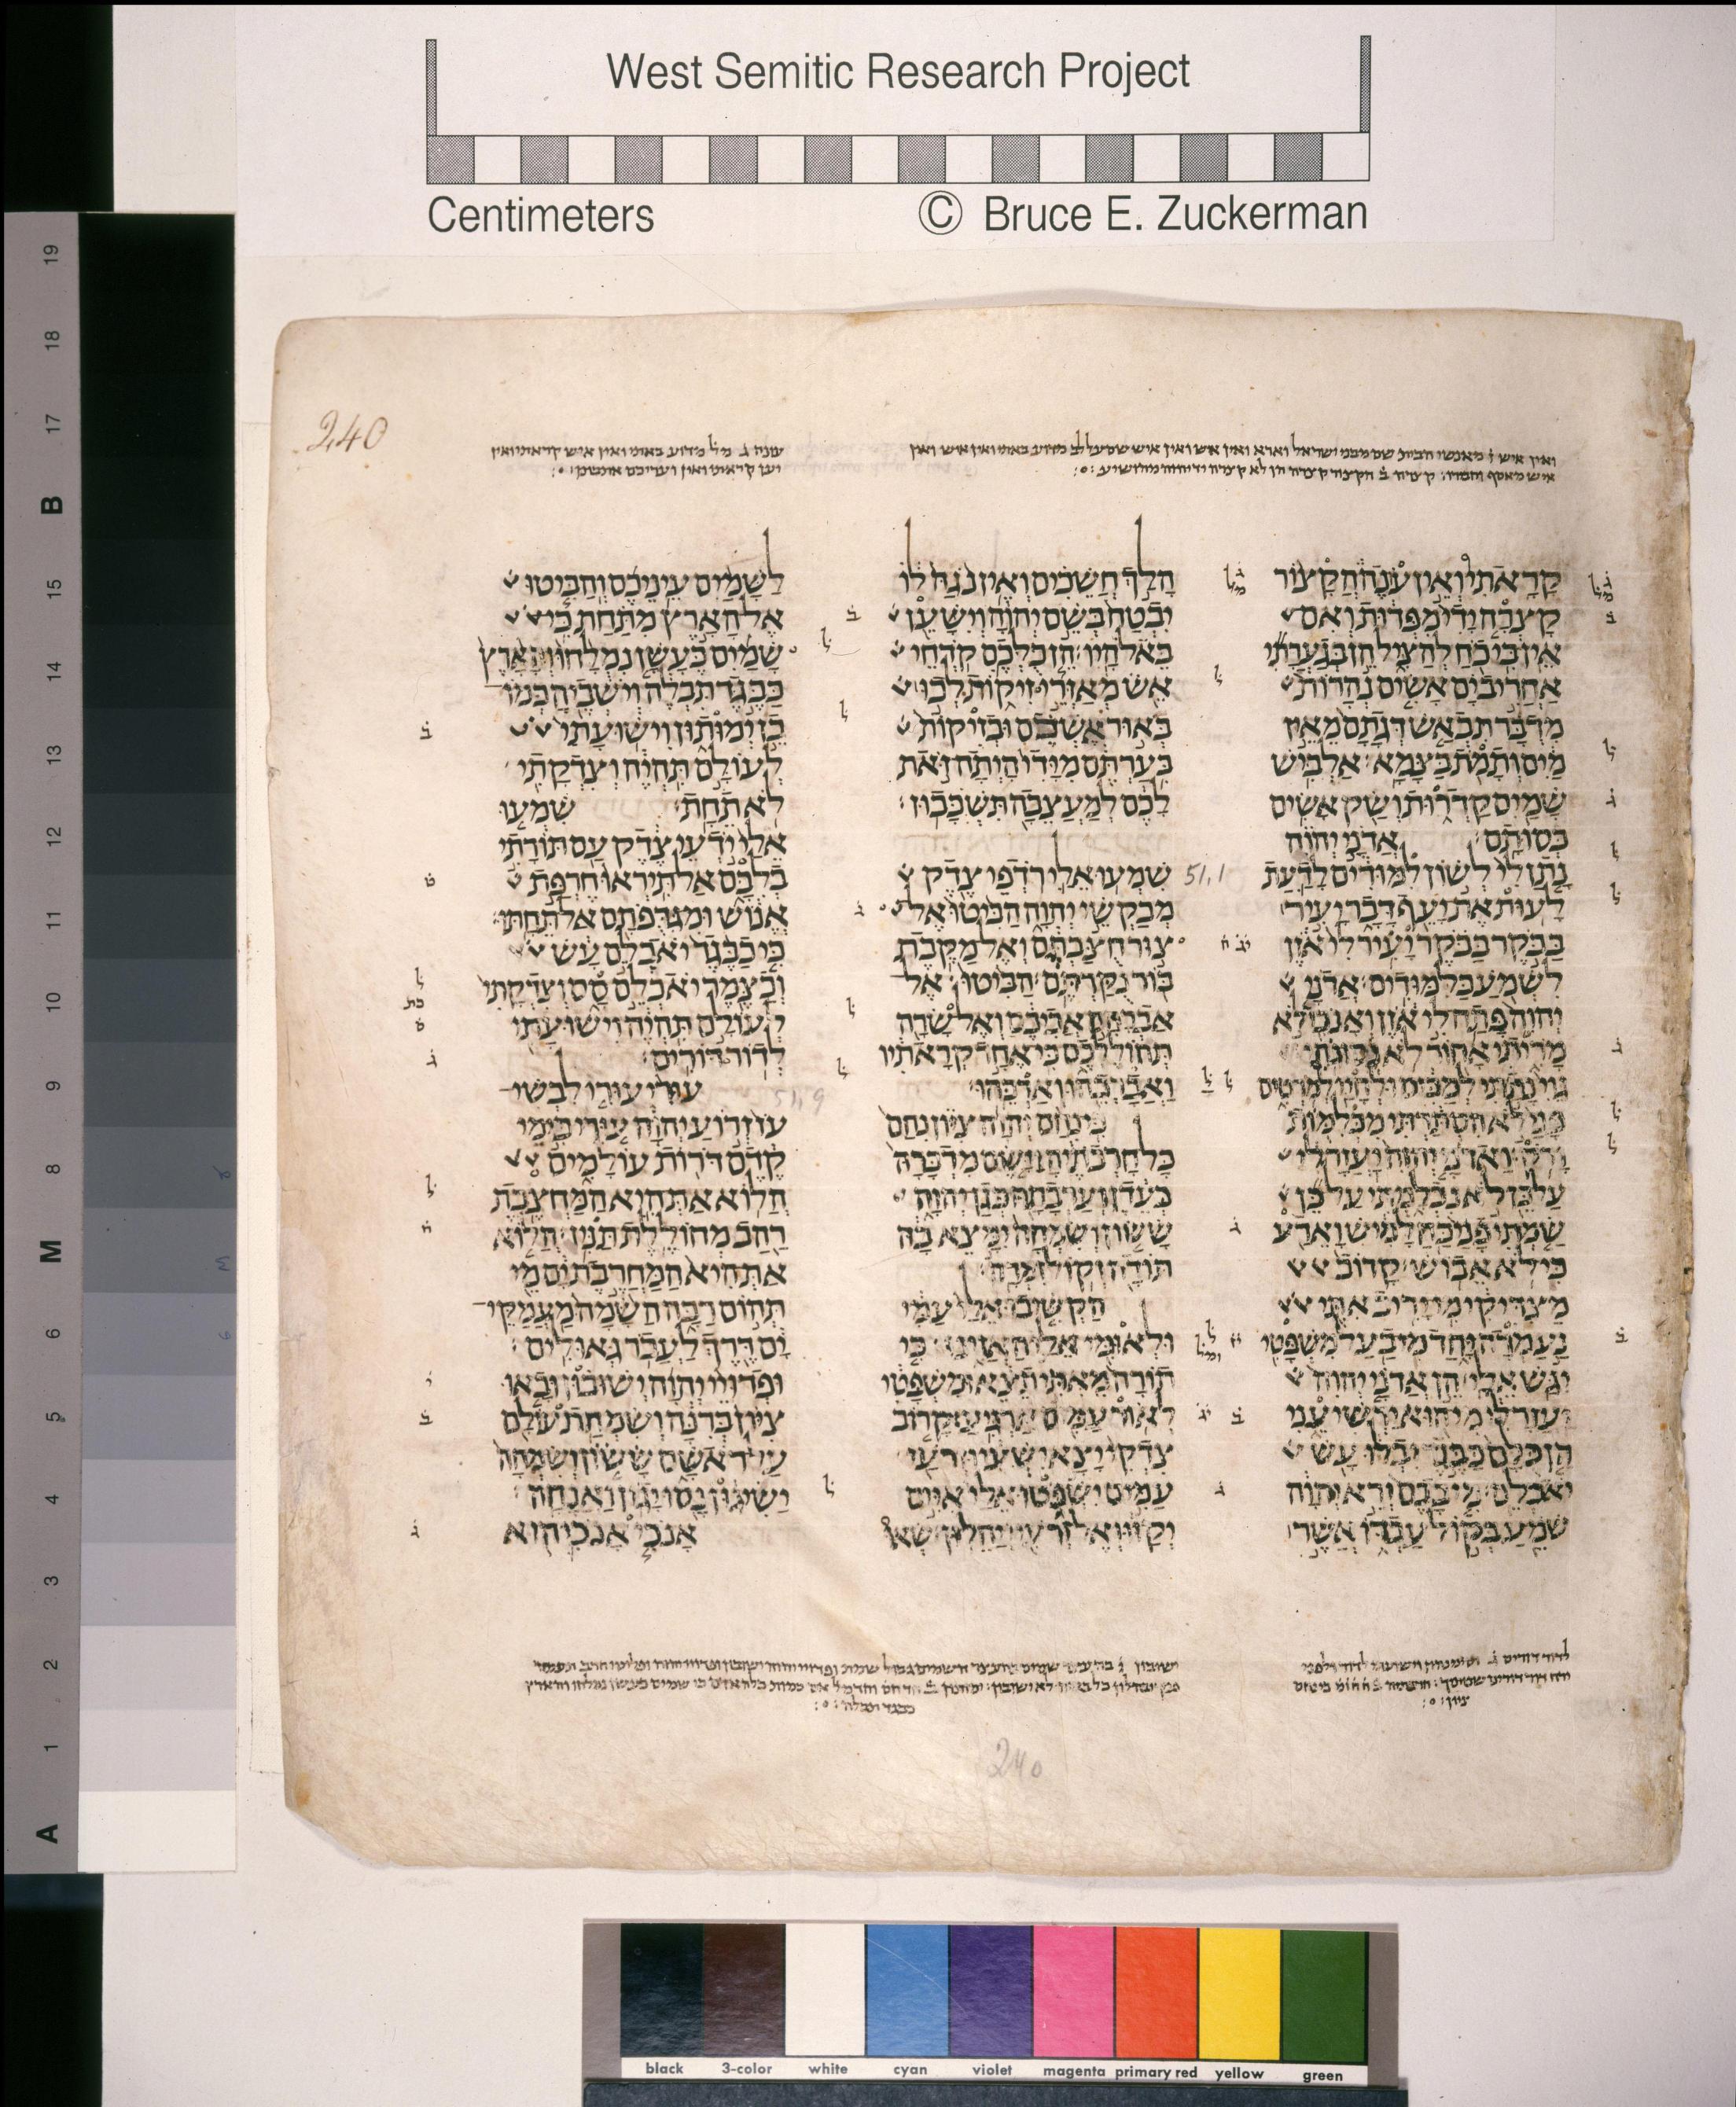 West Semitic Research Project
Centimeters © Bruce E. Zuckerman
240
קָרָאתִי וְאֵין עוֹנֶה הֲקָצוֹר
קָצְרָה יָדִי מִפְּדוּת וְאִם
אֵין בִּי כֹחַ לְהַצִּיל הֵן בְּגַעֲרָתִי
אַחֲרִיב יָם אָשִׂים נְהָרוֹת
מִדְבָּר תִּבְאַשׁ דְּגָתָם מֵאֵין
מַיִם וְתָמֹת בַּצָּמָא׃ אַלְבִּישׁ
שָׁמַיִם קַדְרוּת וְשַׂק אָשִׂים
כְּסוּתָם׃ אֲדֹנָי יְהוִה
נָתַן לִי לְשׁוֹן לִמּוּדִים לָדַעַת
לָעוּת אֶת יָעֵף דָּבָר יָעִיר
בַּבֹּקֶר בַּבֹּקֶר יָעִיר לִי אֹזֶן
לִשְׁמֹעַ כַּלִּמּוּדִים׃ אֲדֹנָי
יְהוִה פָּתַח לִי אֹזֶן וְאָנֹכִי לֹא
מָרִיתִי אָחוֹר לֹא נְסוּגֹתִי׃
גֵּוִי נָתַתִּי לְמַכִּים וּלְחָיַי לְמֹרְטִים
פָּנַי לֹא הִסְתַּרְתִּי מִכְּלִמּוֹת
וָרֹק׃ וַאדֹנָי יְהוִה יַעֲזָר לִי
עַל כֵּן לֹא נִכְלָמְתִּי עַל כֵּן
שַׂמְתִּי פָנַי כַּחַלָּמִישׁ וָאֵדַע
כִּי לֹא אֵבוֹשׁ׃ קָרוֹב
מַצְדִּיקִי מִי יָרִיב אִתִּי
נַעַמְדָה יָּחַד מִי בַעַל מִשְׁפָּטִי
יִגַּשׁ אֵלָי׃ הֵן אֲדֹנָי יְהוִה
יַעֲזָר לִי מִי הוּא יַרְשִׁיעֵנִי
הֵן כֻּלָּם כַּבֶּגֶד יִבְלוּ עָשׁ
יֹאכְלֵם׃ מִי בָכֶם יְרֵא יְהוָה
שֹׁמֵעַ בְּקוֹל עַבְדּוֹ אֲשֶׁר
הָלַךְ חֲשֵׁכִים וְאֵין נֹגַהּ לוֹ
יִבְטַח בְּשֵׁם יְהוָה וְיִשָּׁעֵן
בֵּאלֹהָיו׃ הֵן כֻּלְּכֶם קֹדְחֵי
אֵשׁ מְאַזְּרֵי זִיקוֹת לְכוּ
בְּאוּר אֶשְׁכֶם וּבְזִיקוֹת
בִּעַרְתֶּם מִיָּדִי הָיְתָה זֹּאת
לָכֶם לְמַעֲצֵבָה תִּשְׁכָּבוּן׃
51,1
שִׁמְעוּ אֵלַי רֹדְפֵי צֶדֶק
מְבַקְשֵׁי יְהוָה הַבִּיטוּ אֶל
צוּר חֻצַּבְתֶּם וְאֶל מַקֶּבֶת
בּוֹר נֻקַּרְתֶּם׃ הַבִּיטוּ אֶל
אַבְרָהָם אֲבִיכֶם וְאֶל שָׂרָה
תְּחוֹלֶלְכֶם כִּי אֶחָד קְרָאתִיו
וַאֲבָרְכֵהוּ וְאַרְבֵּהוּ׃
כִּי נִחַם יְהוָה צִיּוֹן נִחַם
כָּל חָרְבֹתֶיהָ וַיָּשֶׂם מִדְבָּרָהּ
כְּעֵדֶן וְעַרְבָתָהּ כְּגַן יְהוָה
שָׂשׂוֹן וְשִׂמְחָה יִמָּצֵא בָהּ
תּוֹדָה וְקוֹל זִמְרָה׃
הַקְשִׁיבוּ אֵלַי עַמִּי
וּלְאוּמִּי אֵלַי הַאֲזִינוּ כִּי
תוֹרָה מֵאִתִּי תֵצֵא וּמִשְׁפָּטִי
לְאוֹר עַמִּים אַרְגִּיעַ׃ קָרוֹב
צִדְקִי יָצָא יִשְׁעִי וּזְרֹעַי
עַמִּים יִשְׁפֹּטוּ אֵלַי אִיִּים
יְקַוּוּ וְאֶל זְרֹעִי יְיַחֵלוּן׃ שְׂאוּ
לַשָּׁמַיִם עֵינֵיכֶם וְהַבִּיטוּ
אֶל הָאָרֶץ מִתַּחַת כִּי
שָׁמַיִם כֶּעָשָׁן נִמְלָחוּ וְהָאָרֶץ
כַּבֶּגֶד תִּבְלֶה וְיֹשְׁבֶיהָ כְּמוֹ
כֵן יְמוּתוּן וִישׁוּעָתִי
לְעוֹלָם תִּהְיֶה וְצִדְקָתִי
לֹא תֵחָת׃ שִׁמְעוּ
אֵלַי יֹדְעֵי צֶדֶק עַם תּוֹרָתִי
בְלִבָּם אַל תִּירְאוּ חֶרְפַּת
אֱנוֹשׁ וּמִגִּדֻּפֹתָם אַל תֵּחָתּוּ׃
כִּי כַבֶּגֶד יֹאכְלֵם עָשׁ
וְכַצֶּמֶר יֹאכְלֵם סָס וְצִדְקָתִי
לְעוֹלָם תִּהְיֶה וִישׁוּעָתִי
לְדוֹר דּוֹרִים׃
51,9
עוּרִי עוּרִי לִבְשִׁי
עֹז זְרוֹעַ יְהוָה עוּרִי כִּימֵי
קֶדֶם דֹּרוֹת עוֹלָמִים
הֲלוֹא אַתְּ הִיא הַמַּחְצֶבֶת
רַהַב מְחוֹלֶלֶת תַּנִּין׃ הֲלוֹא
אַתְּ הִיא הַמַּחֲרֶבֶת יָם מֵי
תְּהוֹם רַבָּה הַשָּׂמָה מַעֲמַקֵּי
יָם דֶּרֶךְ לַעֲבֹר גְּאוּלִים׃
וּפְדוּיֵי יְהוָה יְשׁוּבוּן וּבָאוּ
צִיּוֹן בְּרִנָּה וְשִׂמְחַת עוֹלָם
עַל רֹאשָׁם שָׂשׂוֹן וְשִׂמְחָה
יַשִּׂיגוּן נָסוּ יָגוֹן וַאֲנָחָה׃
אָנֹכִי אָנֹכִי הוּא
240
black 3-color white cyan violet magenta primary red yellow green
A 1 2 3 4 5 6 M 8 9 10 11 12 13 14 15 B 17 18 19